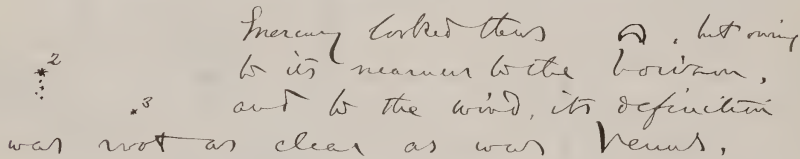 Mercury looked thus , but owing
2 to its nearness to the horizon,
3 and to the wind, its definition
was not as clear as was Venus.